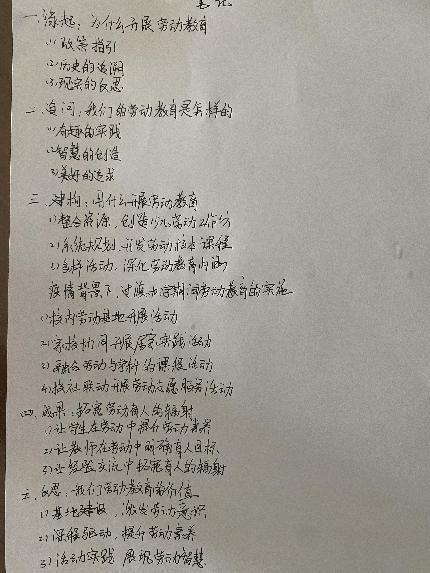 一、缘起：为什么开展劳动教育
(1)政策指引
(2)历史的追溯
(3)现实的反思
二、追问：我们的劳动教育是怎样的
(1)有趣的实践
(2)智慧的创造
(3)美好的追求
三、建构：用什么开展劳动教育
1)整合资源，创造少儿劳动工作坊
2)系统规划，开发劳动校本课程
3)多样活动，深化劳动教育内涵
疫情背景下，劳动教育的实施
1)校内劳动基地开展活动
2)家校协同开展居家实践活动
3)融合劳动与学科的课程活动
4)校社联动开展劳动志愿服务活动
四、成果：拓宽劳动育人的辐射
1)让学生在劳动中提升劳动素养
2)让教师在劳动中明确育人目标
3)让经验交流中拓宽育人的辐射
五、反思：我们劳动教育的价值
1)基地建设，激发劳动意识
2)课程驱动，提升劳动素养
3)活动实践 展现劳动智慧